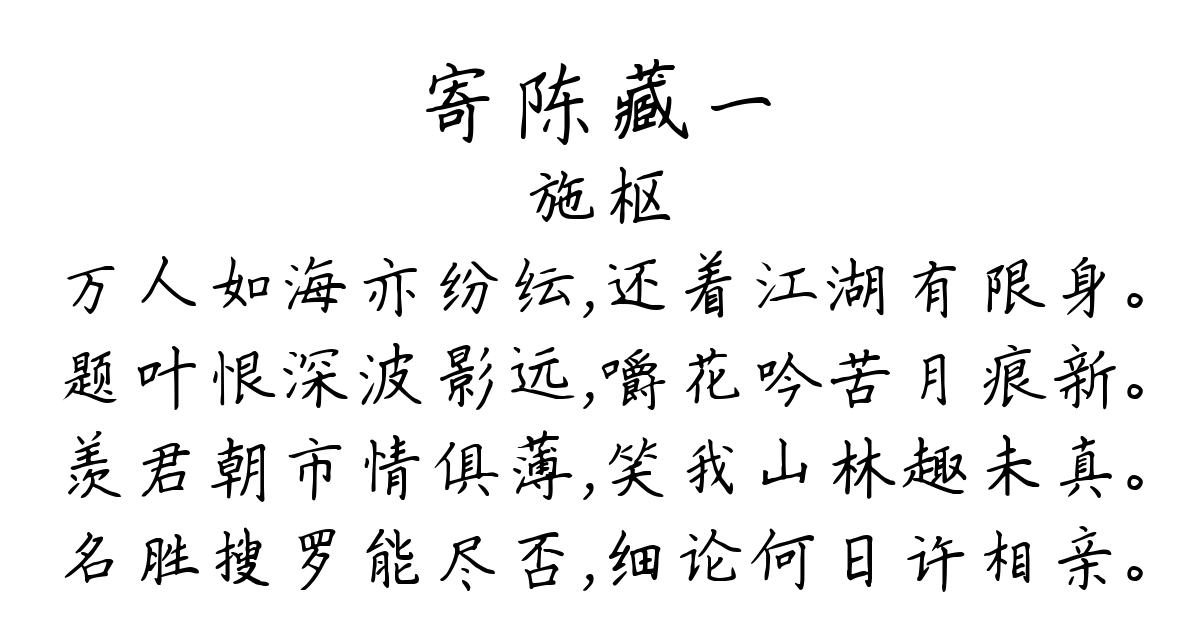 寄陈藏一
施枢
万人如海亦纷纭,还着江湖有限身。
题叶恨深波影远,嚼花吟苦月痕新。
羡君朝市情俱薄,笑我山林趣未真。
名胜搜罗能尽否,细论何日许相亲。